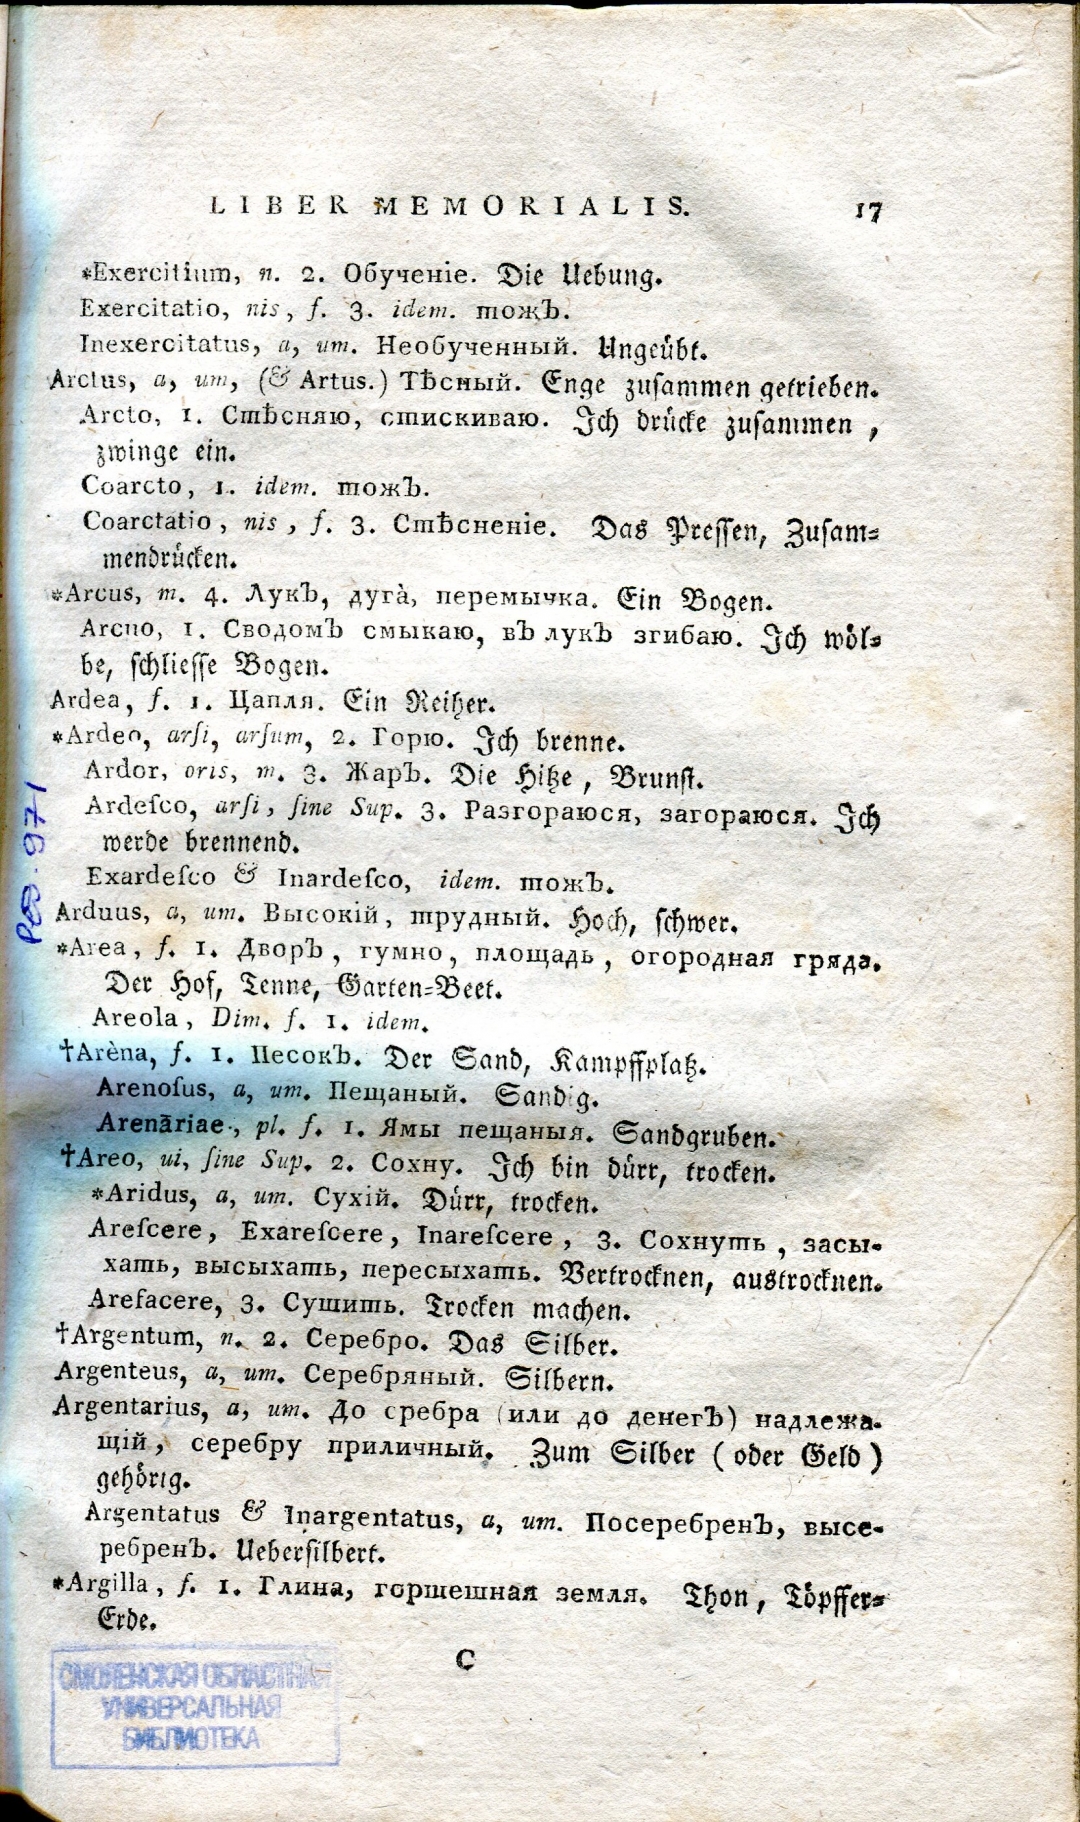 LIBER MEMORIALIS. 17
*Exercitium, n. 2. Обученіе. Die Uebung.
Exercitatio, nis, f. 3. idem. тожЪ.
Inexercitatus, a, um. Необученный. Ungeübt.
Arctus, a, um, (& Artus.) Тѣсный. Enge zusammen getrieben.
Arcto, 1. Стѣсняю, стискиваю. Ich drücke zusammen,
zwinge ein.
Coarcto, 1. idem. тожЪ.
Coarctatio, nis, f. 3. Стѣсненіе. Das Pressen, Zusam=
mendrücken.
*Arcus, m. 4. ЛукЪ, дуга̀, перемычка. Ein Bogen.
Arcuo, 1. СводомЪ смыкаю, вЪ лукЪ згибаю. Ich wöl=
be, schliesse Bogen.
Ardea, f. 1. Цапля. Ein Reiher.
*Ardeo, arſi, arſum, 2. Горю. Ich brenne.
Ardor, oris, m. 3. ЖарЪ. Die Hitze, Brunst.
Ardeſco, arſi, ſine Sup. 3. Разгораюся, загораюся. Ich
werde brennend.
Exardeſco & Inardeſco, idem. тожЪ.
Arduus, a, um. Высокій, трудный. Hoch, schwer.
*Area, f. 1. ДворЪ, гумно, площадь, огородная гряда.
Der Hof, Tenne, Garten=Beet.
Areola, Dim. f. 1. idem.
†Arèna, f. 1. ПесокЪ. Der Sand, Kampffplatz.
Arenoſus, a, um. Пещаный. Sandig.
Arenāriae, pl. f. 1. Ямы пещаныя. Sandgruben.
†Areo, ui, ſine Sup. 2. Сохну. Ich bin dürr, trocken.
*Aridus, a, um. Сухій. Dürr, trocken.
Areſcere, Exareſcere, Inareſcere, 3. Сохнуть, засы-
хать, высыхать, пересыхать. Vertrocknen, austrocknen.
Arefacere, 3. Сушить. Trocken machen.
†Argentum, n. 2. Серебро. Das Silber.
Argenteus, a, um. Серебряный. Silbern.
Argentarius, a, um. До сребра (или до денегЪ) надлежа-
щій, серебру приличный. Zum Silber (oder Geld)
gehörig.
Argentatus & Inargentatus, a, um. ПосеребренЪ, высе-
ребренЪ. Uebersilbert.
*Argilla, f. 1. Глина, горшешная земля. Thon, Töpffer=
Erde.
C
СМОЛЕНСКАЯ ОБЛАСТНАЯ
УНИВЕРСАЛЬНАЯ
БИБЛИОТЕКА